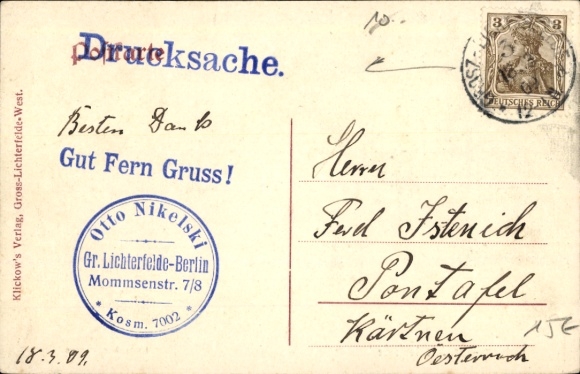 10.
Postkarte
Drucksache.
3 3
DEUTSCHES REICH
12
Besten Dank
Gut Fern Gruss!
Otto Nikelski
Gr. Lichterfelde-Berlin
Mommsenstr. 7/8
* Kosm. 7002 *
18.3.09.
Klickow's Verlag, Gross-Lichterfelde-West.
Herrn
Ferd Istenich
Pontafel
Kärtnen
Oesterreich
15€